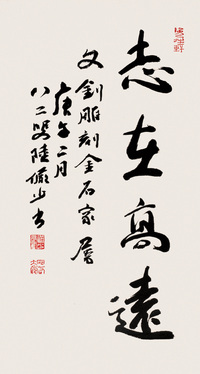 志在高遠
文釗雕刻金石家屬
庚午二月
八二叟陸儼少書